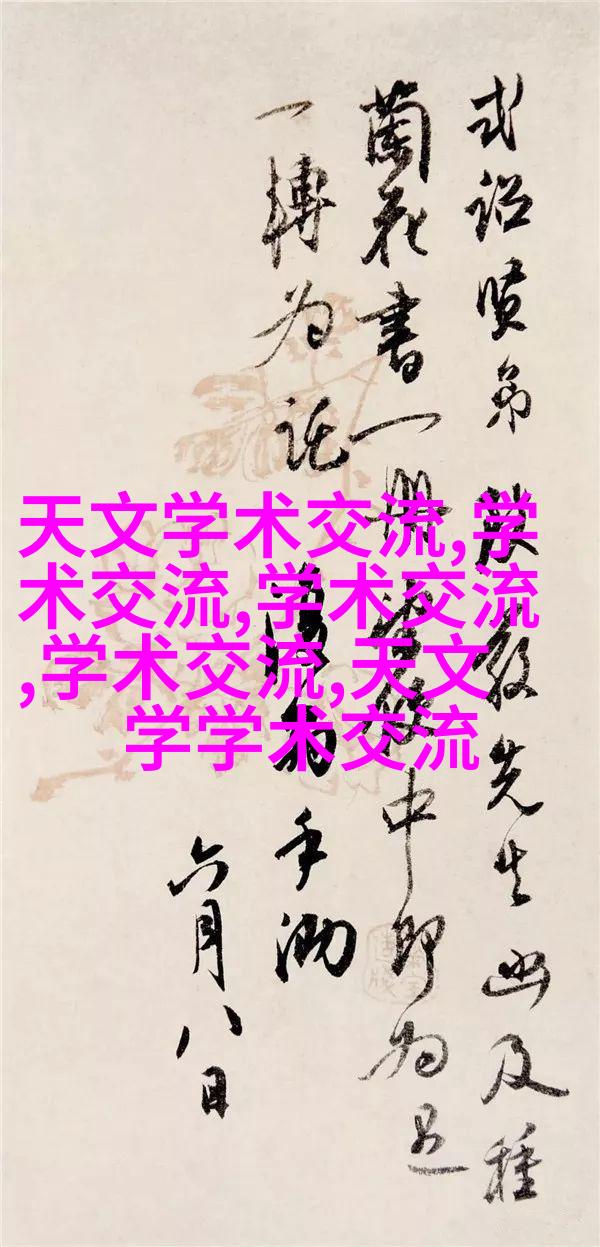 天文学术交流,学
术交流,学术交流
,学术交流,天文
学学术交流
式 贤弟 教先生函及種
蘭花書一冊 中即为
一轉为託 手泐
六月八日